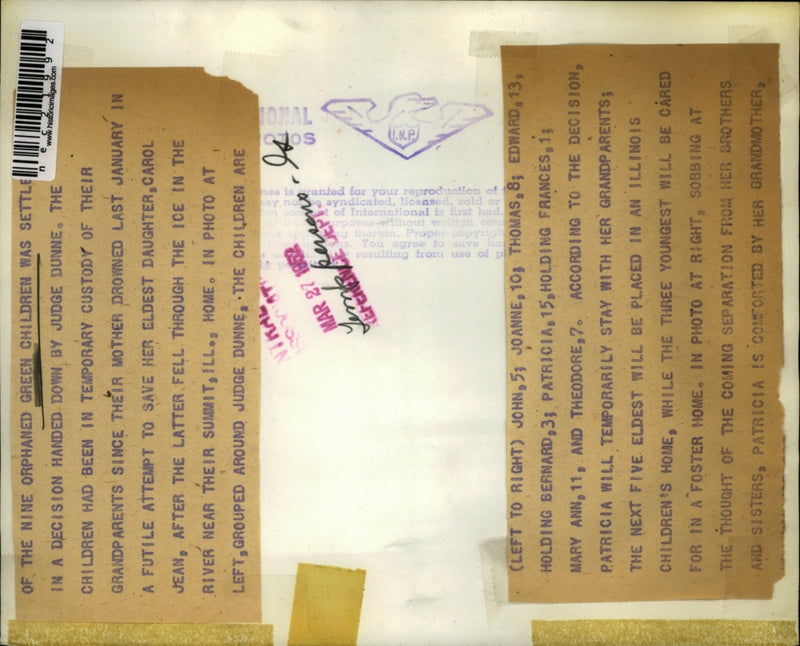 OF THE NINE ORPHANED GREEN CHILDREN WAS SETTLE
IN A DECISION HANDED DOWN BY JUDGE DUNNE. THE
CHILDREN HAD BEEN IN TEMPORARY CUSTODY OF THEIR
GRANDPARENTS SINCE THEIR MOTHER DROWNED LAST JANUARY IN
A FUTILE ATTEMPT TO SAVE HER ELDEST DAUGHTER, CAROL
JEAN, AFTER THE LATTER FELL THROUGH THE ICE IN THE
RIVER NEAR THEIR SUMMIT, ILL., HOME. IN PHOTO AT
LEFT, GROUPED AROUND JUDGE DUNNE, THE CHILDREN ARE
(LEFT TO RIGHT) JOHN, 5; JOANNE, 10; THOMAS, 8; EDWARD, 13,
HOLDING BERNARD, 3; PATRICIA, 15, HOLDING FRANCES, 1;
MARY ANN, 11, AND THEODORE, 7. ACCORDING TO THE DECISION,
PATRICIA WILL TEMPORARILY STAY WITH HER GRANDPARENTS;
THE NEXT FIVE ELDEST WILL BE PLACED IN AN ILLINOIS
CHILDREN'S HOME, WHILE THE THREE YOUNGEST WILL BE CARED
FOR IN A FOSTER HOME. IN PHOTO AT RIGHT, SOBBING AT
THE THOUGHT OF THE COMING SEPARATION FROM HER BROTHERS
AND SISTERS, PATRICIA IS COMFORTED BY HER GRANDMOTHER,
www.historicimages.com
IONAL
OTOS
I.N.P.
nse is granted for your reproduction of
may not be syndicated, licensed, sold or
of International is first had
without written
therein. Proper copyright
You agree to save
resulting from use of
MAR 27 1952
REFERENCE DEPT